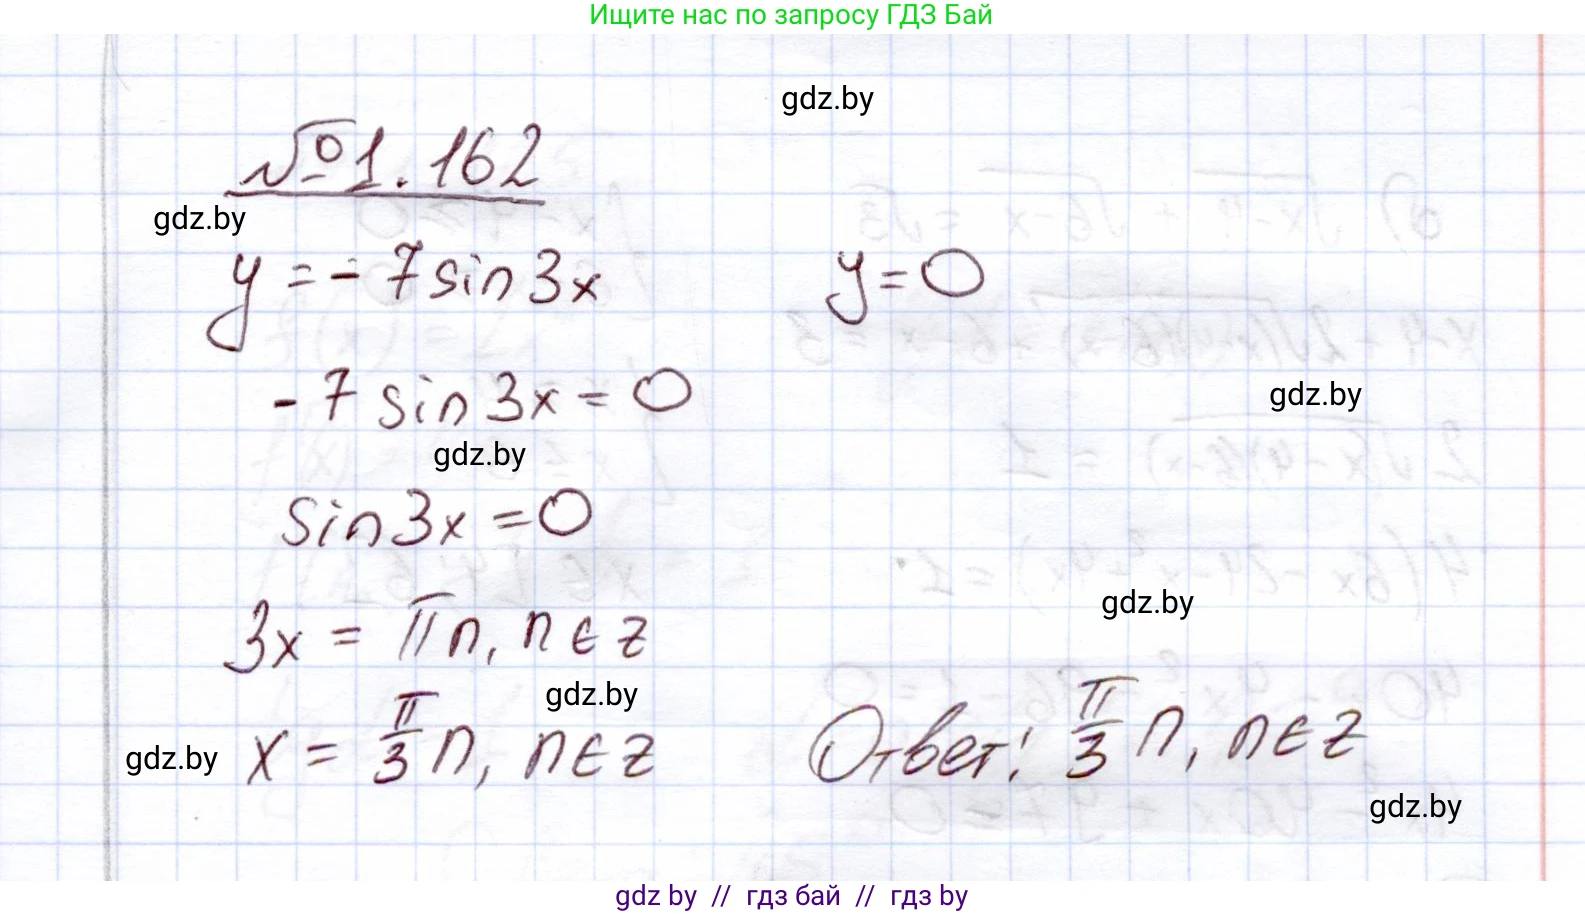 Ищите нас по запросу ГДЗ Бай
gdz.by
№1.162
gdz.by
y = -7sin3x y=0
-7 sin3x = 0
gdz.by
gdz.by
sin3x = 0
gdz.by
3x = πn, n ∈ z
gdz.by
x = π/3 n, n ∈ z Ответ: π/3 n, n ∈ z
gdz.by
gdz.by
gdz by // гдз бай // гдз by